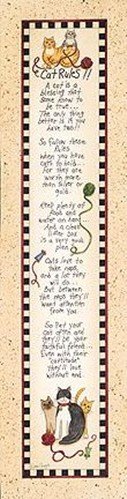 Cat Rules!!
A cat is a
blessing that
some know to
be true...
The only thing
better is if you
have two!!
So follow these
rules
when you have
cats to hold...
For they are
worth more
than silver or
gold.
Keep plenty of
food and
water on hand...
And a clean
litter box
is a very good
plan.
Cats love to
take naps,
and a lot they
will do...
But between
the naps they'll
want attention
from you.
So pet your
cat often and
they'll be your
faithful friend...
Even with their
"cattitude"
They'll love
without end.